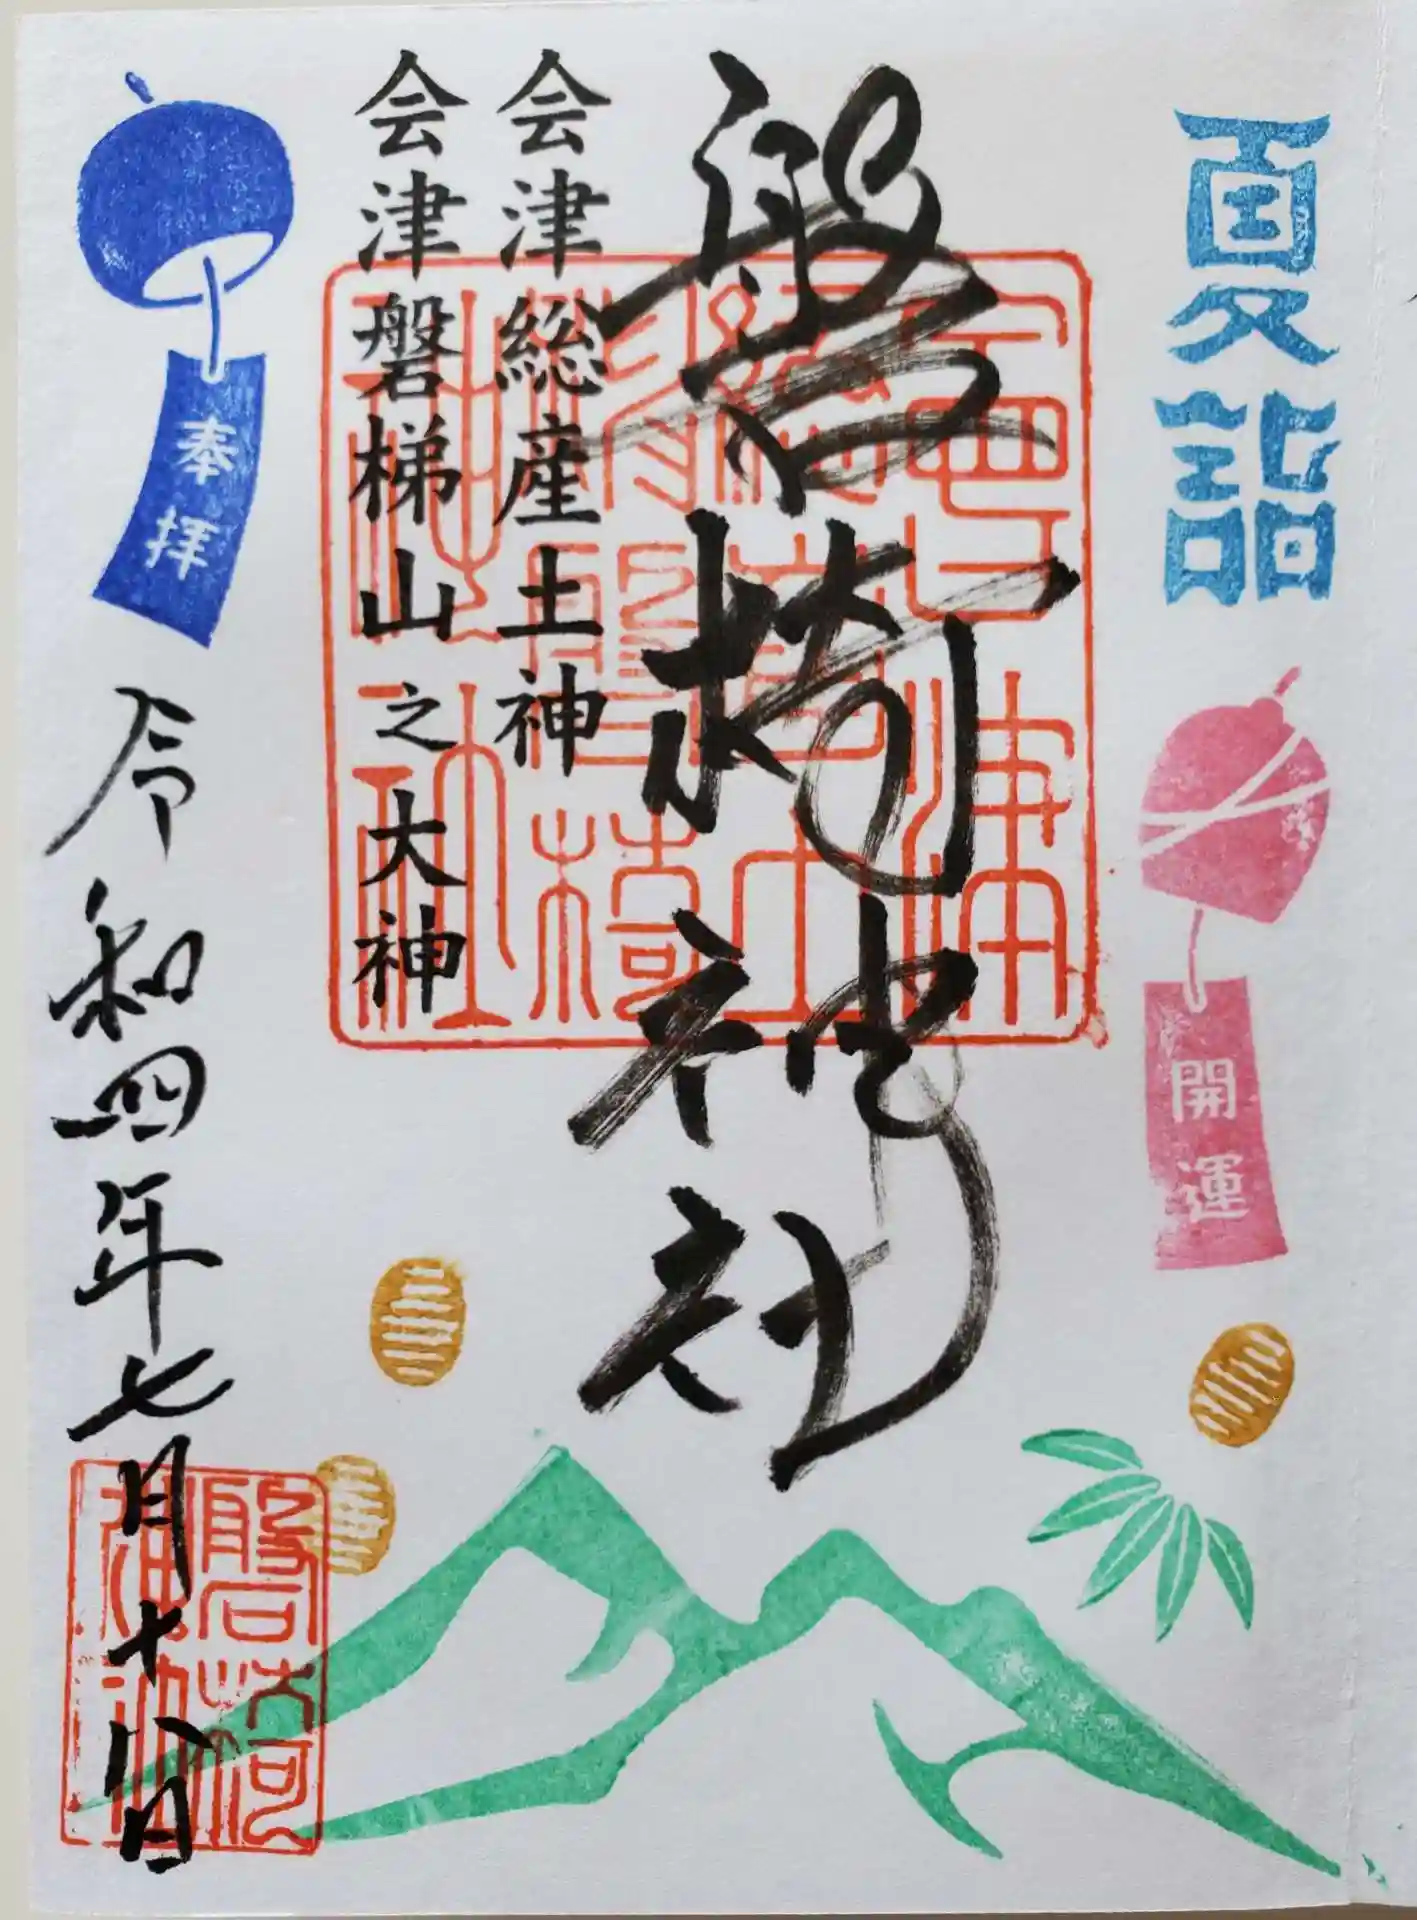 夏詣
開運
磐椅神社
会津総産土神
会津磐梯山之大神
奉拝
令和四年七月十八日